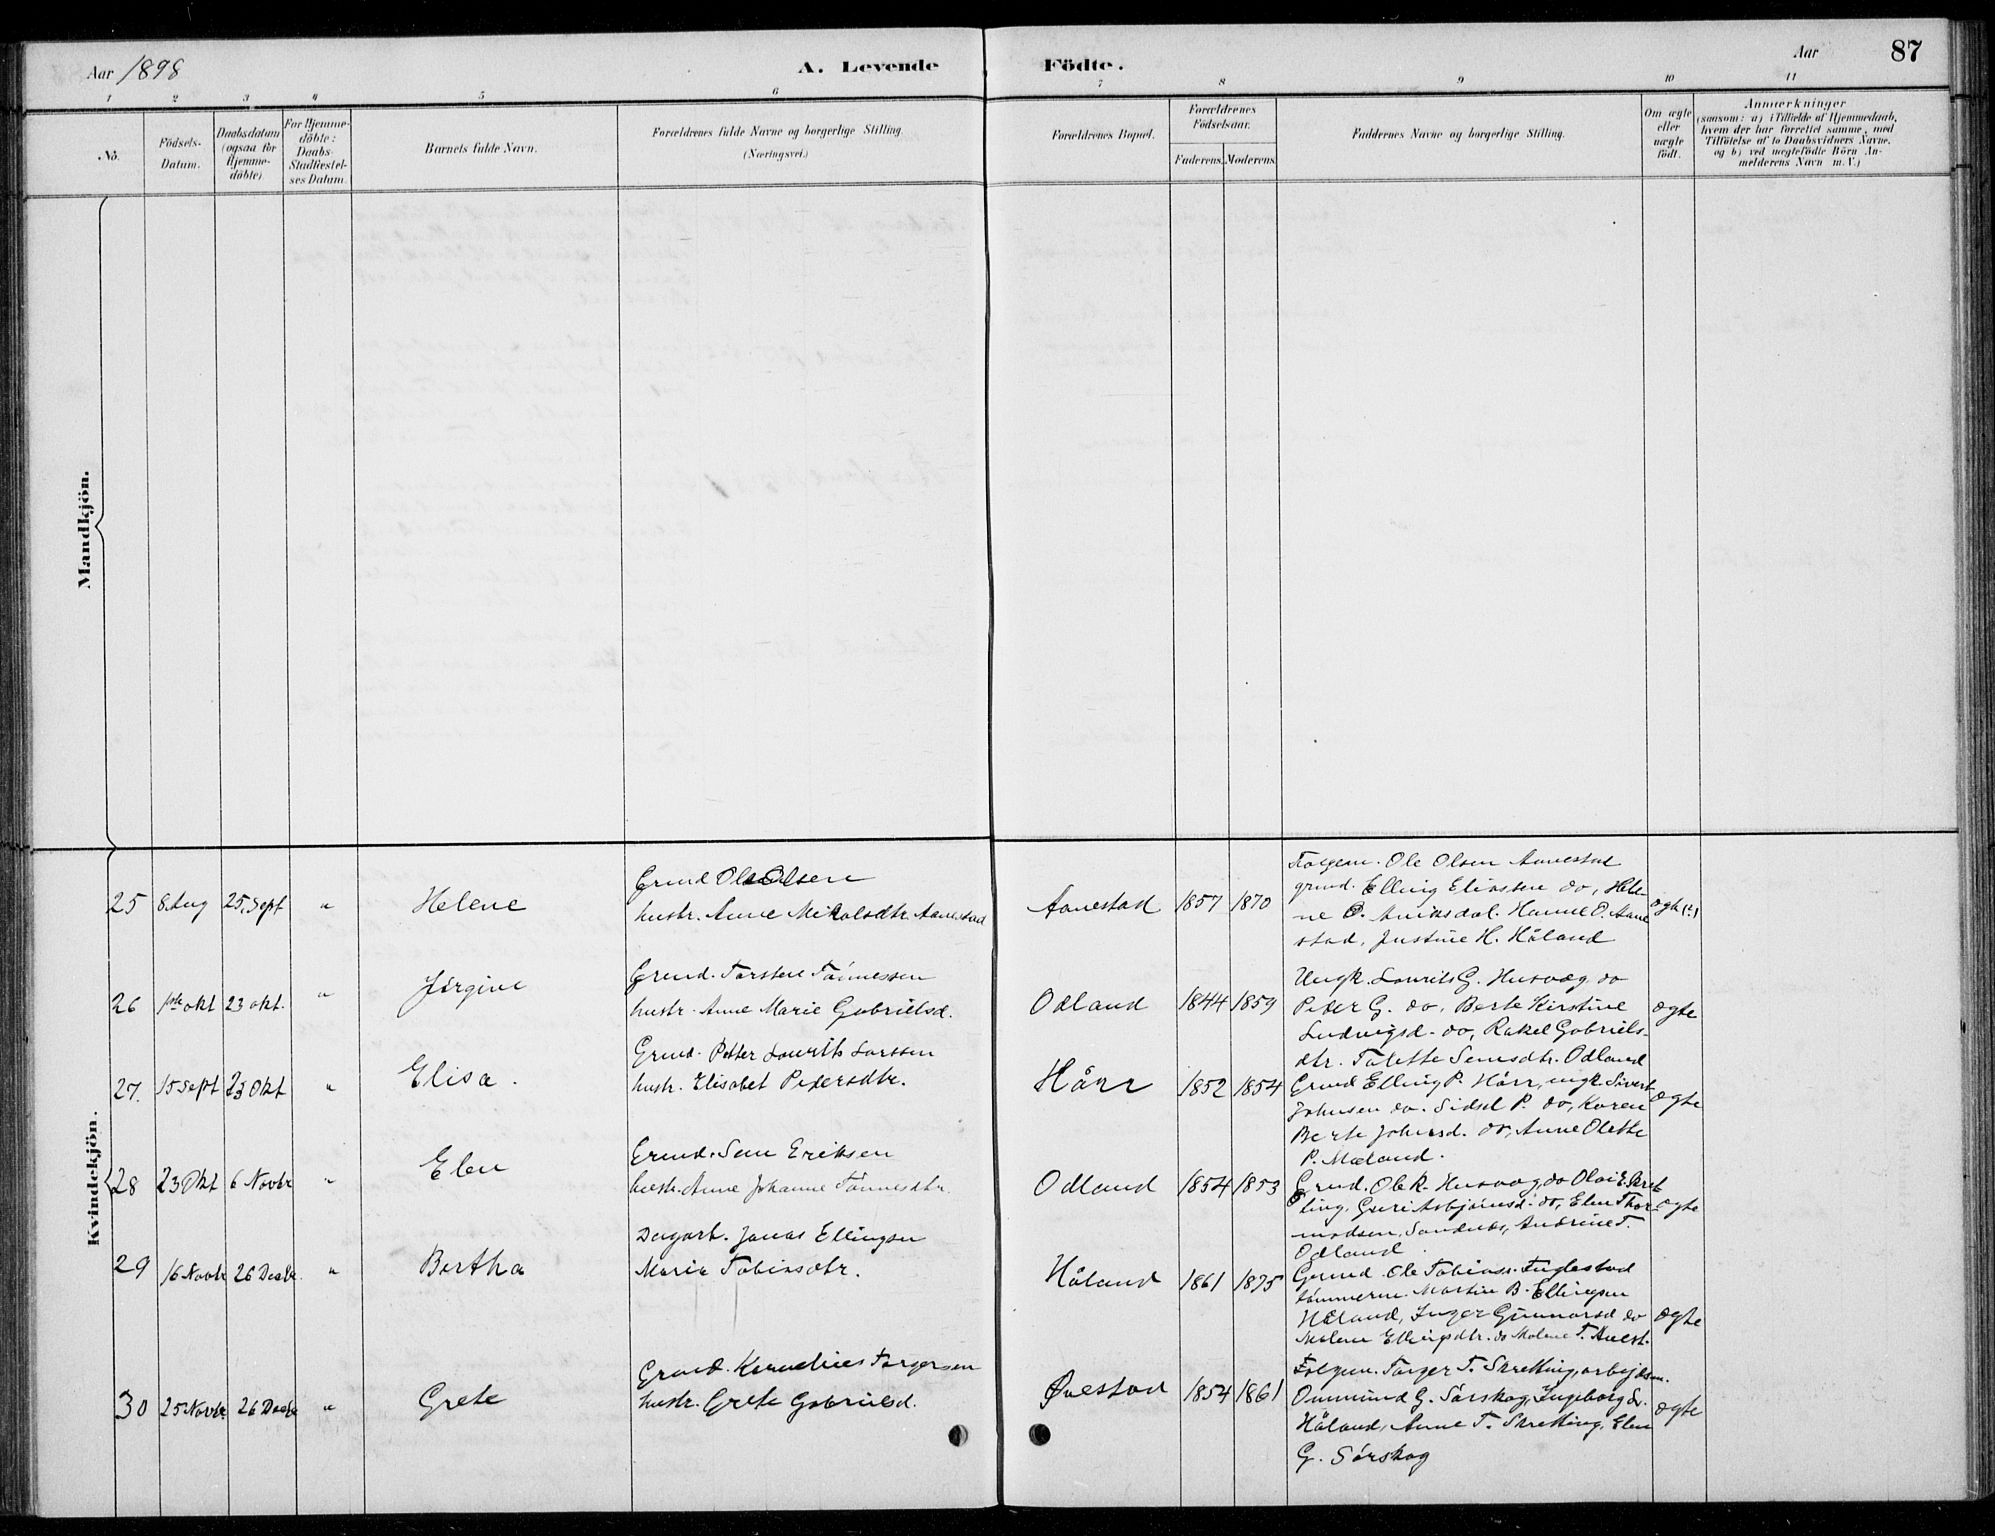 Aar 1898
A. Levende Födte.
Aar
87
1 2 3 4 5 6 7 8 9 10 11
No.
Födsels-Datum.
Daabsdatum (ogsaa for Hjemme-döbte)
For Hjemme-döbte: Daabs-Stadfæstel-ses Datum.
Barnets fulde Navn.
Forældrenes fulde Navne og borgerlige Stilling. (Næringsvei.)
Forældrenes Bopæl.
Forældrenes Födselsaar.
Faderens. Moderens.
Faddernes Navne og borgerlige Stilling.
Om ægte eller uægte födt.
Anmærkninger
(saasom: a) i Tilfælde af Hjemmedaab,
hvem der har forrettet samme, med
Tilföielse af to Daabsvidners Navne,
og b) ved uægtefödte Börn An-
melderens Navn m. V.)
Mandkjön.
Kvindekjön.
25 8 Aug 25 Sept " Helene
Grmd Ole Olsen
hustr. Anne Mikalsdtr. Aanestad
Aanestad 1857 1870
Folgem. Ole Olsen Aanestad
grmd. Elling Eliassen do, Hele-
ne O. Aniksdal. Hanne O. Aane
stad, Justine H. Håland
ægte
26 1ste okt 23 okt. " Jørgine
Grmd. Torsten Tønnessen
hustr. Anne Marie Gabrielsd.
Odland 1844 1859
Ungk. Laurits G. Husvæg do
Peder G. do, Berte Kirstine
Ludvigsd. do, Rakel Gabriels-
dtr. Talette Semsdtr. Odland
ægte
27. 15 Sept 23 Okt " Elisa.
Grmd. Petter Laurits Larssen
hustr. Elisabet Pedersdtr.
Hårr 1852 1854
Grmd Elling P. Hårr, ungk. Sivert
Johnsen do. Sidsel P. do, Karen
Berte Johnsd. do, Anne Olette
P. Mæland.
ægte
28 23 Okt 6 Novbr " Elen
Grmd. Sem Eriksen
hustr. Anne Johanne Tønnesdtr.
Odland 1854 1853
Grmd. Ole K. Husvæg, do Olai E. Skret-
ting, Guri Asbjørnsd. do, Elen Thor-
modsen, Sandnes, Andrine T.
Odland.
ægte
29 16 Novbr 26 Decbr. " Bertha
Dagarb. Jonas Ellingsen
Maria Tobiasdtr.
Håland 1861 1875
Grmd. Ole Tobiass. Fuglestad
tømmerm. Martin B. Ellingsen
Håland, Inger Gunnarsd do
Malene Ellingsdtr. do Malene T.
ægte
30 25 Novbr. 26 Decbr " Grete
Grmd. Kornelius Torgersen
hustr. Grete Gabrielsd.
Øvestad 1854 1861
Folgem. Torger T. Skretting, arbejdsm.
Ommund G. Sørskog, Ingeborg
Håland, Anne T. Skretting, Elen
G. Sørskog
ægte